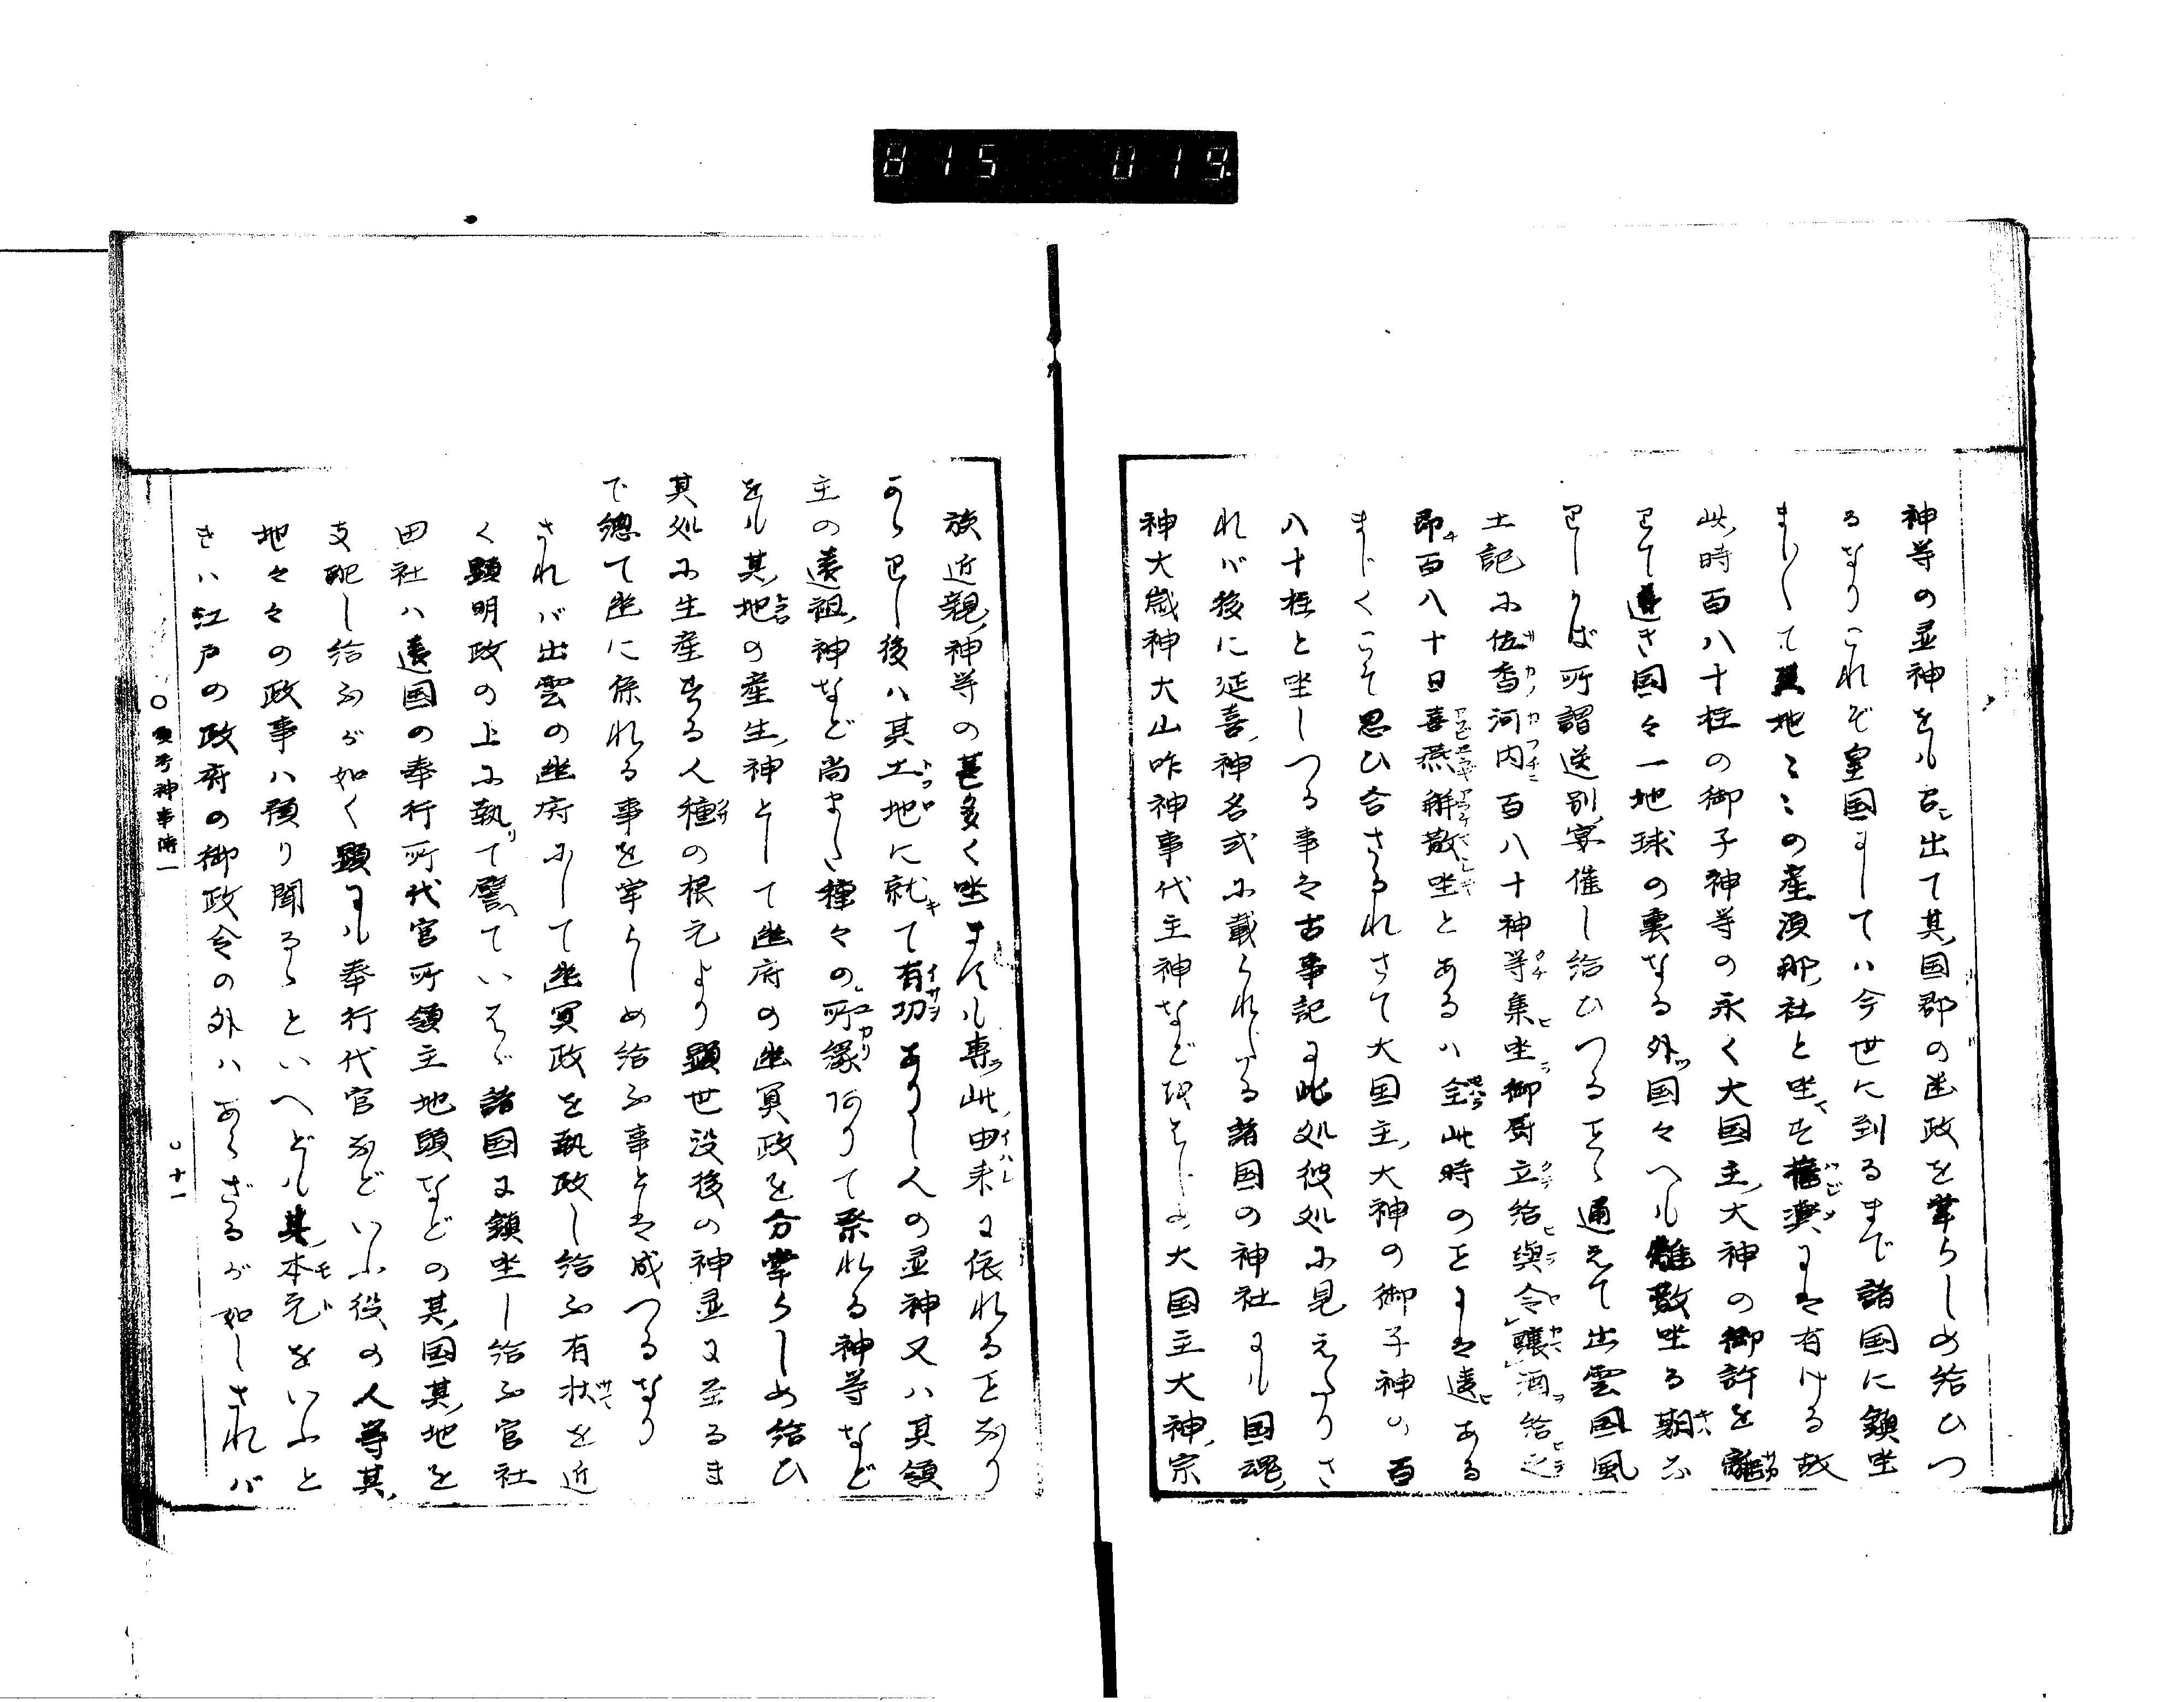 815 019
神等の霊神をも召出て其国郡の幽政を掌らしめ給ひつ
るなりこれぞ皇国にしてハ今世に到るまで諸国に鎮坐
まして其地ミミの産須那社と坐す権輿にハ有ける故
此時百八十柱の御子神等の永く大国主大神の御許を離
りて遠き国々一地球の裏なる外国々へも離散坐る期な
りしかば所謂送別宴催し給ひつるを通えて出雲国風
土記に佐香河内百八十神等集坐御厨立給與令醸酒給之
即百八十日喜燕解散坐とあるハ全此時のをにハ違ある
まじくこそ思ひ合さるれさて大国主大神の御子神の百
八十柱と坐しつる事ハ古事記に此処彼処に見えたりさ
れバ後に延喜神名式に載られたる諸国の神社にも国魂
神大歳神大山咋神事代主神などはじめ大国主大神宗
族近親神等の甚多く坐ますも専此由来に依れるをなり
からりし後ハ其土地に就て有功ありし人の霊神又ハ其領
主の遠祖神など尚また種々の所縁ありて祭れる神等など
をも其地の産生神として幽府の幽冥政を分掌らしめ給ひ
其処に生産する人種の根元より顕世没後の神霊に至るま
で總て幽に係れる事を掌らしめ給ふ事とハ成つるなり
されバ出雲の幽府にして幽冥政を執政し給ふ有状を近
く顕明政の上に執て譬ていはゞ諸国に鎮坐し給ふ官社
田社ハ遠国の奉行所代官所領主地頭などの其国其地を
支配し給ふが如く顕にも奉行代官などいふ役の人等其
地々々の政事ハ預り聞るゝといへども其本元をいふと
きハ江戸の政府の御政令の外ハあらざるが如しされバ
神事時一
○十一